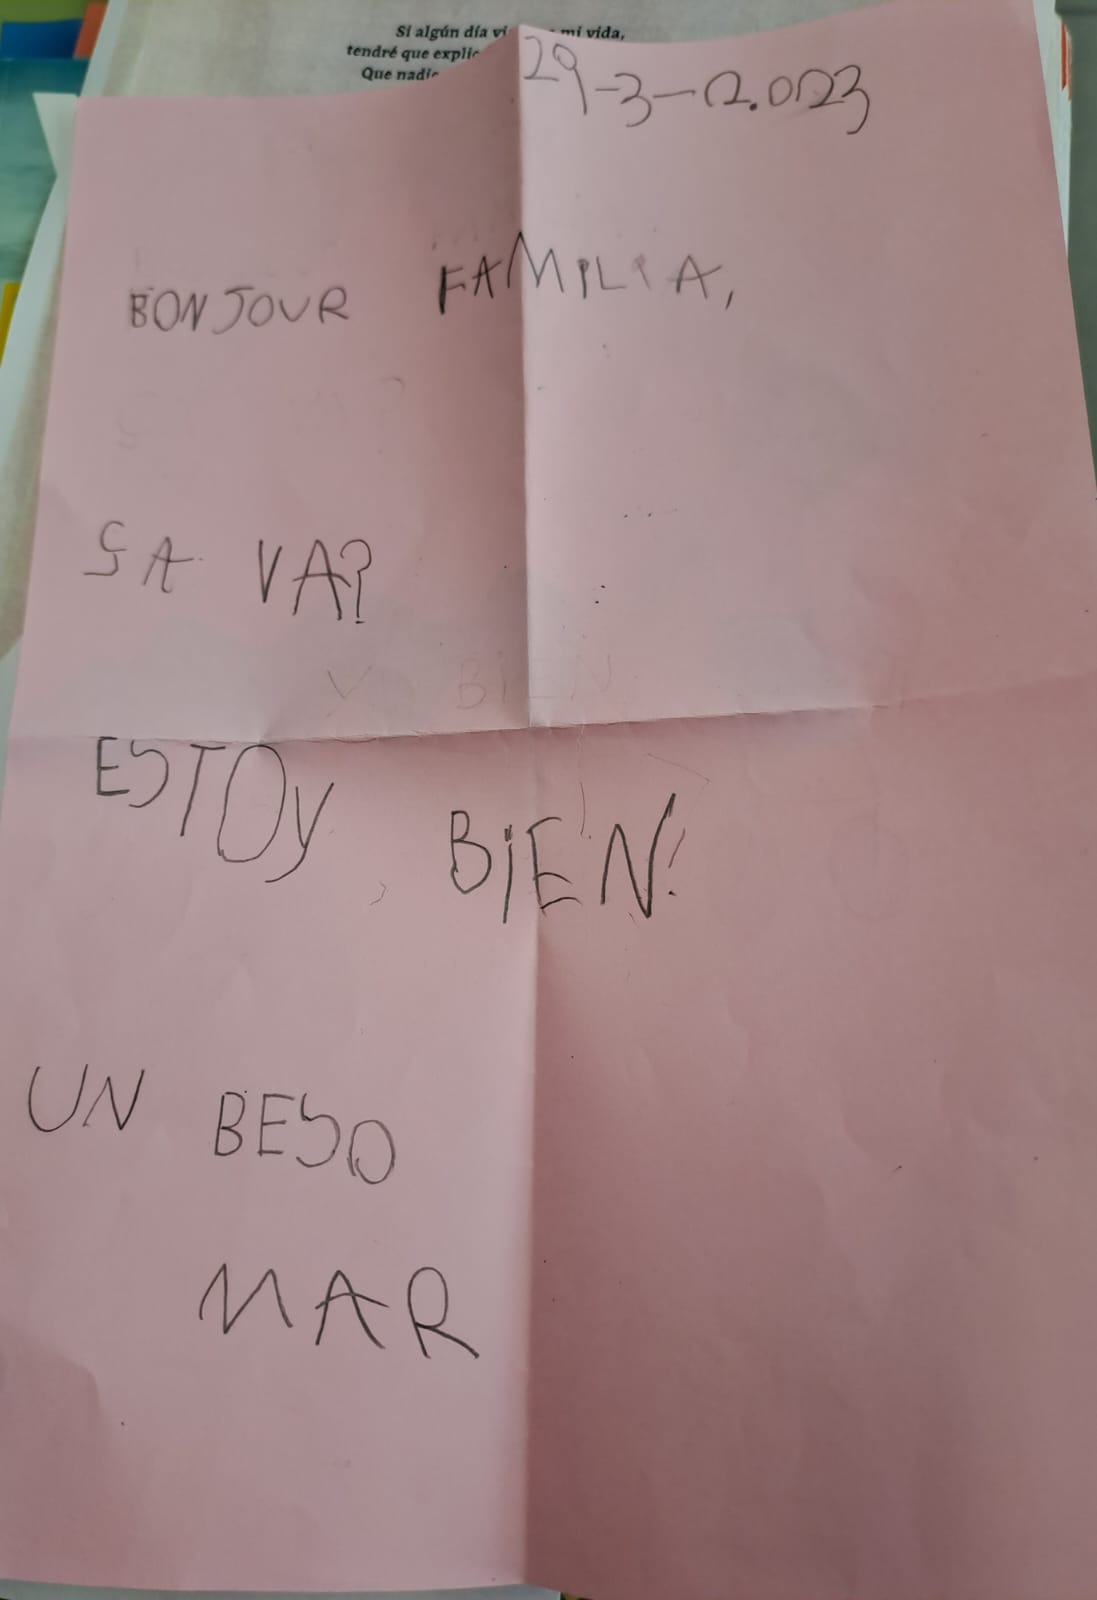 Si algún día mi vida,
tendré que
Que nadie
29-3-2.023
BONJOUR FAMILIA,
ÇA VA?
YO BIEN
ESTOY BIEN!
UN BESO
MAR